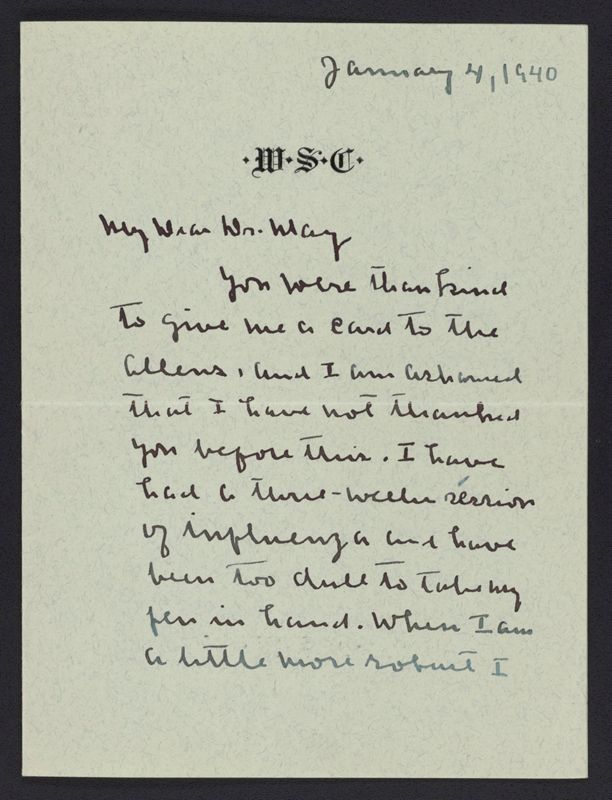 January 4, 1940
·W·S·C·
My Dear Dr. May
You were than kind
to give me a card to the
Allens, and I am ashamed
that I have not thanked
you before this. I have
had a three-weeks session
of influenza and have
been too dull to take my
pen in hand. When I am
a little more robust I